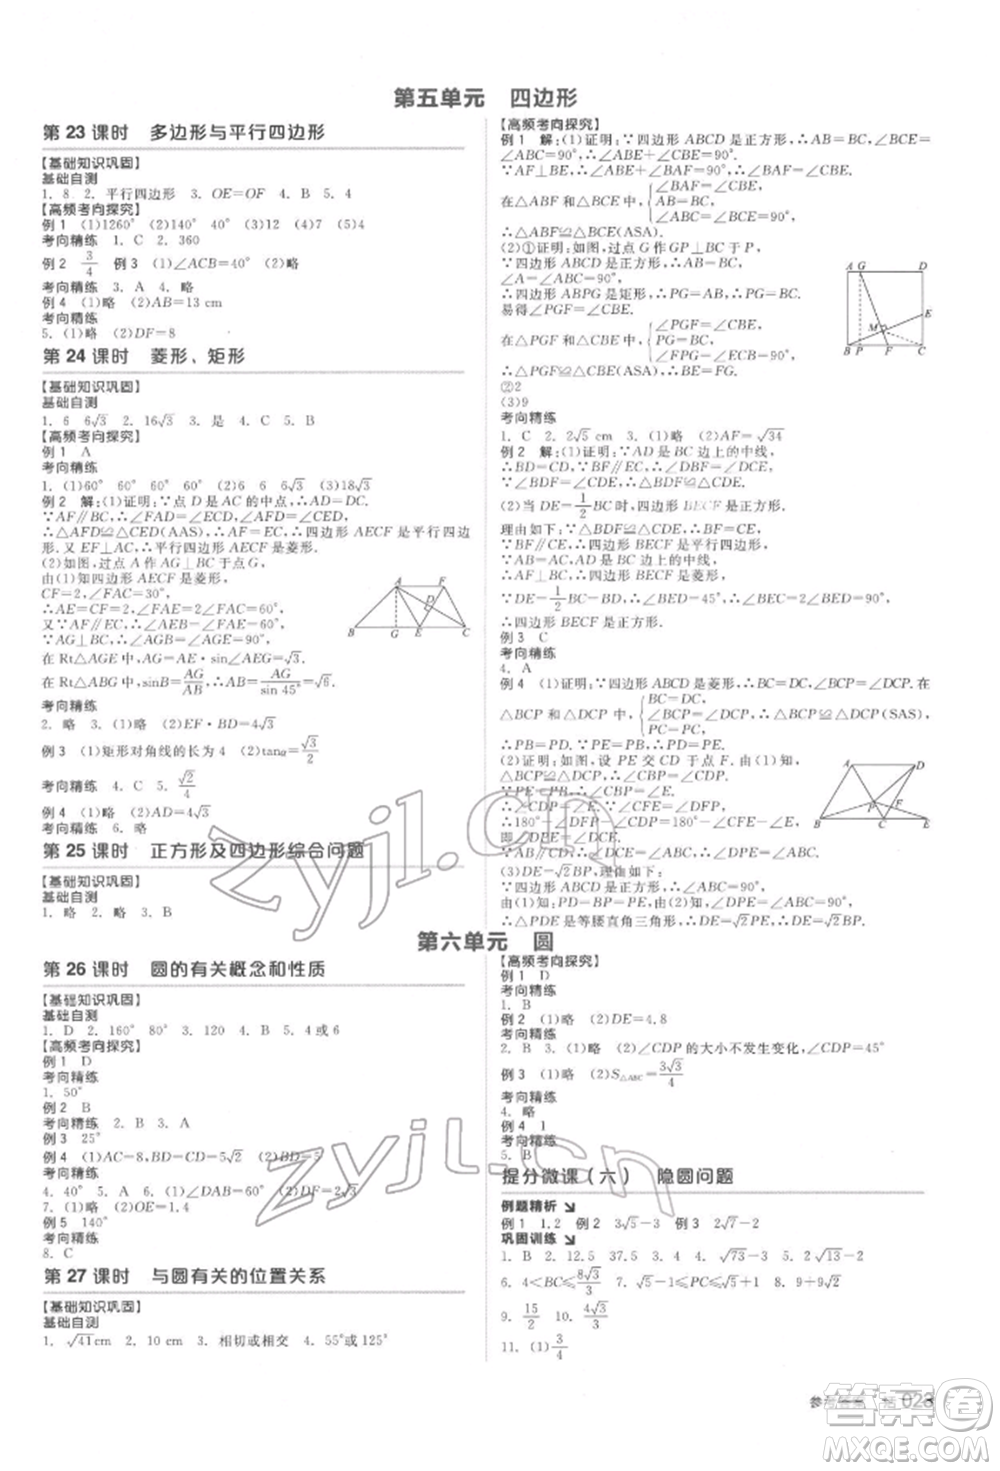 第五单元 四边形
第 23 课时 多边形与平行四边形
【基础知识巩固】
基础自测
1. 8 2. 平行四边形 3. OE=OF 4. B 5. 4
【高频考向探究】
例 1 (1)1260° (2)140° 40° (3)12 (4)7 (5)4
考向精练 1. C 2. 360
例 2 3/4 例 3 (1)∠ACB=40° (2)略
考向精练 3. A 4. 略
例 4 (1)略 (2)AB=13 cm
考向精练
5. (1)略 (2)DF=8
第 24 课时 菱形、矩形
【基础知识巩固】
基础自测
1. 6 6√3 2. 16√3 3. 是 4. C 5. B
【高频考向探究】
例 1 A
考向精练
1. (1)60° (2)6 6 6√3 (3)18√3
例 2 解:(1)证明:∵点 D 是 AC 的中点,∴AD=DC.
∵AF∥BC,∴∠FAD=∠ECD,∠AFD=∠CED,
∴△AFD≌△CED(AAS),∴AF=EC,∴四边形 AECF 是平行四边
形.又 EF⊥AC,∴平行四边形 AECF 是菱形.
(2)如图,过点 A 作 AG⊥BC 于点 G,
由(1)知四边形 AECF 是菱形,
CF=2,∠FAC=30°,
∴AE=CF=2,∠FAE=2∠FAC=60°,
又∵AF∥BC,∴∠AEB=∠FAE=60°,
∵AG⊥BC,∴∠AGB=∠AGE=90°,
在 Rt△AGE 中,AG=AE·sin∠AEG=√3.
在 Rt△ABG 中,sinB=AG/AB,∴AB=AG/sin 45°=√6.
A F D B G E C
考向精练
2. 略 3. (1)略 (2)EF·BD=4√3
例 3 (1)矩形对角线的长为 4 (2)tanα=√3/2
考向精练 4. C 5. √2/4
例 4 (1)略 (2)AD=4√3
考向精练 6. 略
第 25 课时 正方形及四边形综合问题
【基础知识巩固】
基础自测
1. 略 2. 略 3. B
【高频考向探究】
例 1 解:(1)证明:∵四边形 ABCD 是正方形,∴AB=BC,∠BCE=
∠ABC=90°,∴∠ABE+∠CBE=90°.
∵AF⊥BE,∴∠ABE+∠BAF=90°,∴∠BAF=∠CBE.
在△ABF 和△BCE 中,{∠BAF=∠CBE, AB=BC, ∠ABC=∠BCE=90°,
∴△ABF≌△BCE(ASA).
(2)①证明:如图,过点 G 作 GP⊥BC 于 P,
∵四边形 ABCD 是正方形,∴AB=BC,
∠A=∠ABC=90°,
∴四边形 ABPG 是矩形,∴PG=AB,∴PG=BC.
易得∠PGF=∠CBE,
在△PGF 和△CBE 中,{∠PGF=∠CBE, PG=BC, ∠FPG=∠ECB=90°,
∴△PGF≌△CBE(ASA),∴FG=BE.
A G D E M B P F C
②2
(3)9
考向精练
1. C 2. 2√5 cm 3. (1)略 (2)AF=√34
例 2 解:(1)证明:∵AD 是 BC 边上的中线,
∴BD=DC.∵BF∥EC,∴∠DBF=∠DCE.
∵∠BDF=∠CDE,∴△BDF≌△CDE.
(2)当 DE=1/2 BC时,四边形 BECF 是正方形.
理由如下:∵△BDF≌△CDE,∴BF=CE,
∵BF∥CE,∴四边形 BFCE 是平行四边形.
∵AB=AC,AD 是 BC 边上的中线,
∴∠BDE=90°,∴四边形 BECF 是菱形.
∵DE=1/2 BC=BD,∴∠BED=45°,∴∠BEC=2∠BED=90°,
∴四边形 BECF 是正方形.
例 3 C
考向精练
4. A
例 4 (1)证明:∵四边形 ABCD 是菱形,∴BC=DC,∠BCP=∠DCP.在
△BCP 和△DCP 中,{BC=DC, ∠BCP=∠DCP, PC=PC, ∴△BCP≌△DCP(SAS),
∴PB=PD.∵PE=PB,∴PE=PD.
(2)证明:如图,设 PE 交 CD 于点 F,
∵PE=PB,∴∠CBP=∠E.
∴∠CDP=∠CBP=∠E.∵∠CFE=∠DFP,
∴180°-∠DFP-∠CDP=180°-∠CFE-∠E,
即∠DPE=∠DCE.
∵AB∥CD,∴∠ABC=∠DCE,∴∠DPE=∠ABC.
A D P F B C E
(3)DE=√2BP.理由如下:
∵四边形 ABCD 是菱形,∠ABC=90°,
由(1)知:PD=PB=PE,
由(2)知:∠DPE=∠ABC=90°,
∴△PDE 是等腰直角三角形,∴DE=√2PE,∴DE=√2BP.
第六单元 圆
第 26 课时 圆的有关概念和性质
【基础知识巩固】
基础自测
1. D 2. 160° 80° 3. 120 4. B 5. 4 或 6
【高频考向探究】
例 1 D
考向精练
1. 50°
例 2 B
考向精练 2. B 3. A
例 3 25°
例 4 (1)AC=8,BD=CD=5√2 (2)BD=5
考向精练
4. 40° 5. A 6. (1)∠DAB=60° (2)DB=5√3
7. (1)略 (2)OE=1.4
例 5 140°
考向精练
8. C
第 27 课时 与圆有关的位置关系
【基础知识巩固】
基础自测
1. √41cm 2. 10 cm 3. 相切或相交 4. 55°或 125°
【高频考向探究】
例 1 D
考向精练
1. B
例 2 (1)略 (2)DE=4.8
考向精练
2. B 3. (1)略 (2)∠CDP 的大小不发生变化,∠CDP=45°
例 3 (1)略 (2)S△ABC=3√3/4
考向精练
4. 略
例 4 1
考向精练
5. B
提分微课（六） 隐圆问题
例题精析
例 1 1.2 例 2 3√5-3 例 3 2√7-2
巩固训练
1. B 2. 12.5 37.5 3. 2 4. √73-3 5. √3
6. 4<BC≤8√3/3 7. √5 8. 9+9√2
9. 15/2 10. 4√3/3
11. (1)3/4
参考答案 023
zyjl.cn
zyjl.cn
答案圈
MXQE.COM